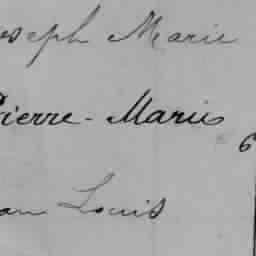 oseph Marie
Pierre-Marie
6
ean Louis